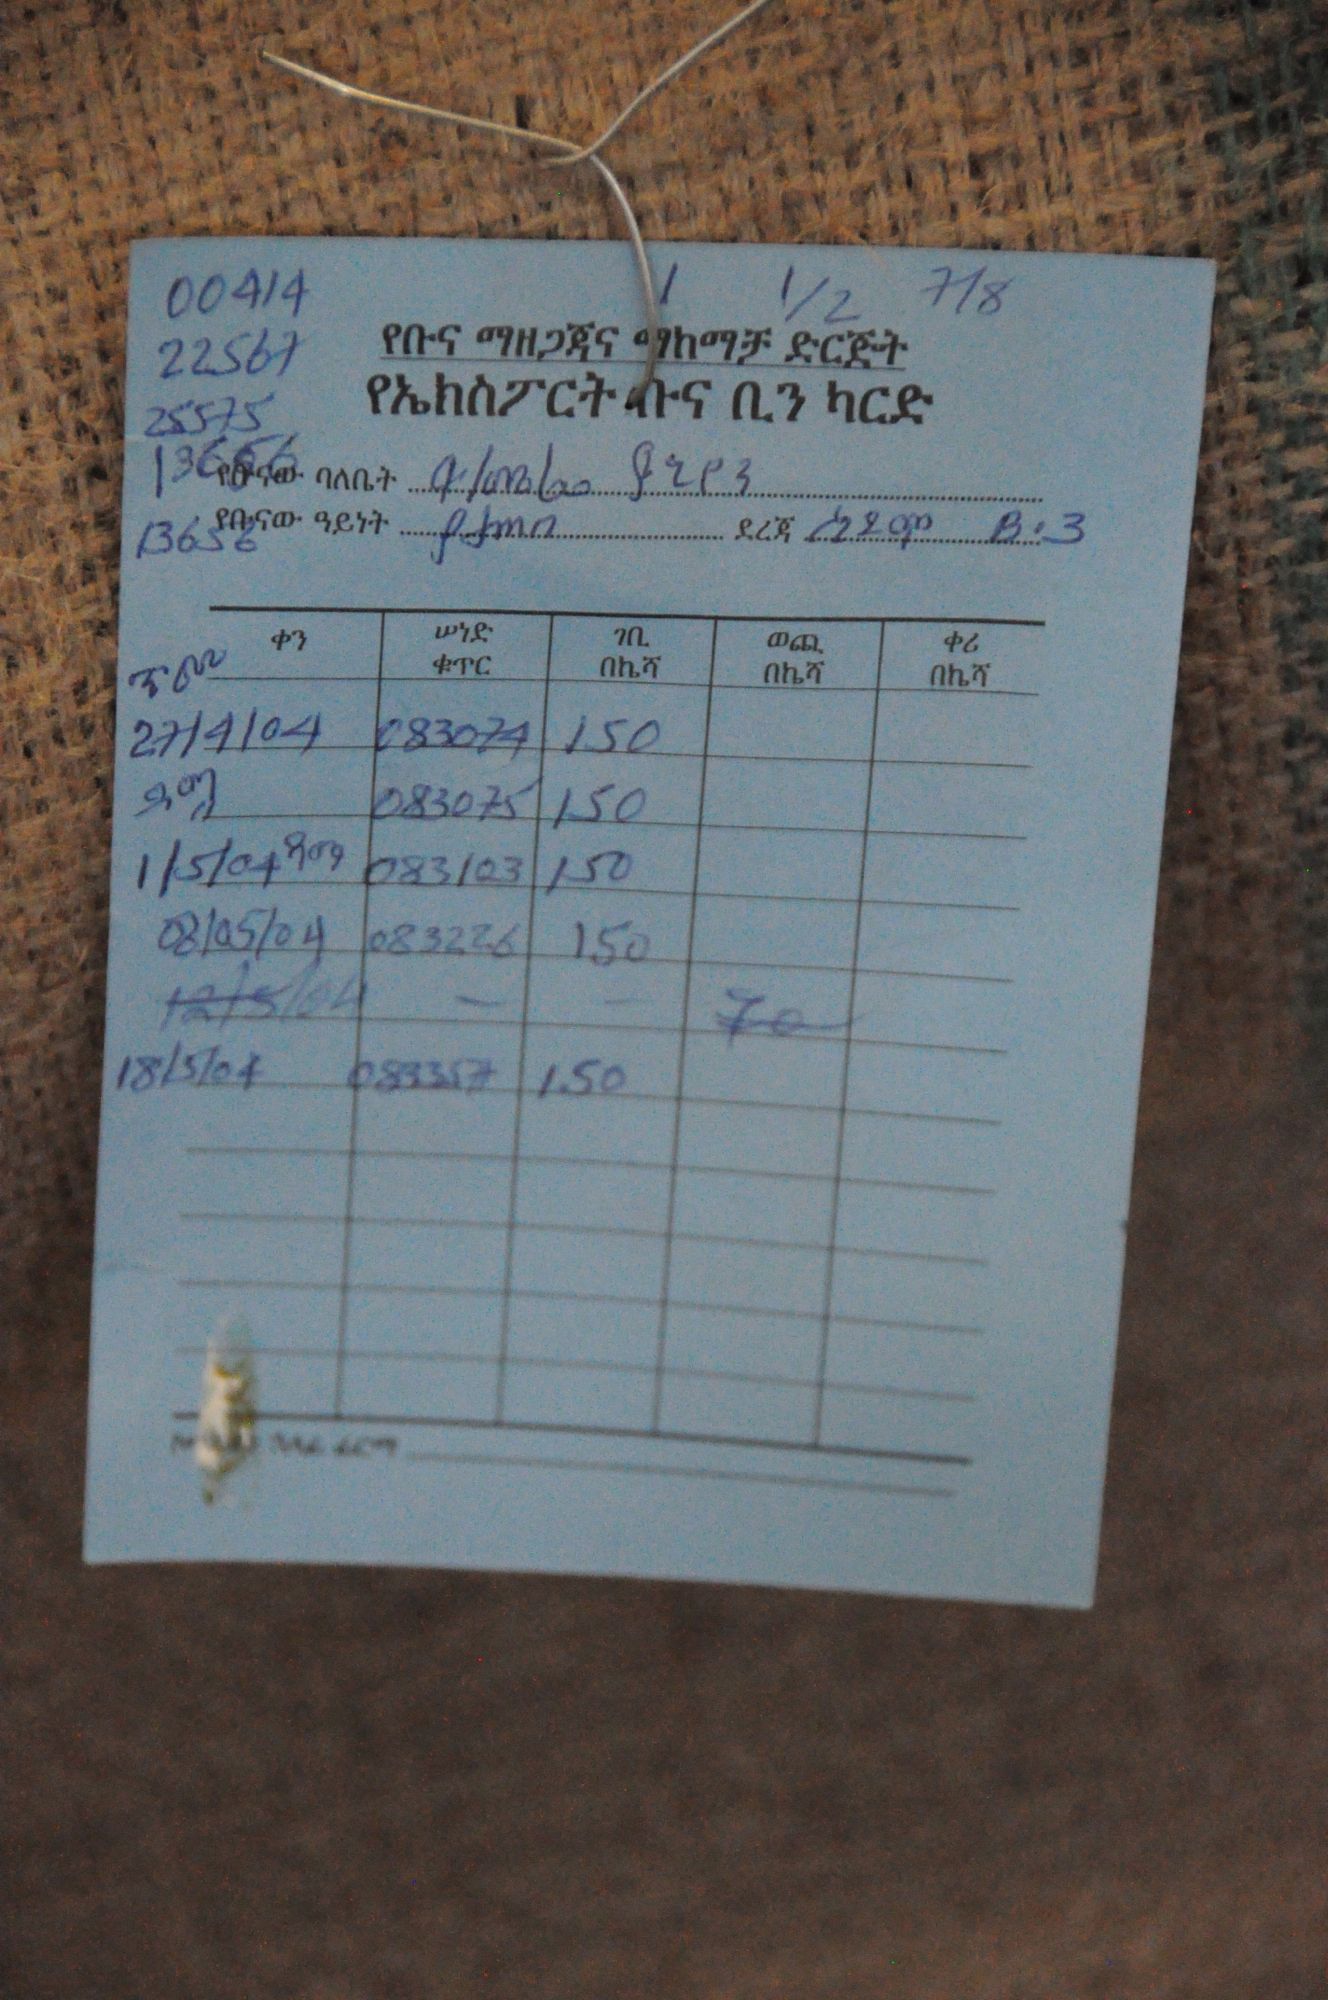 00414 1 1/2 7/8
22567
የቡና ማዘጋጃና ማከማቻ ድርጅት
25575
የኤክስፖርት ቡና ቢን ካርድ
13656
የቡናው ባለቤት
13656
የቡናው ዓይነት ያታጠበ ደረጃ ሲዳሞ B.3
ቀን ሠነድ ቁጥር ገቢ በኬሻ ወጪ በኬሻ ቀሪ በኬሻ
27/4/04 083074 150
083075 150
1/5/04 083103 150
08/05/04 083226 150
12/5/04 - - 70
18/5/04 083357 150